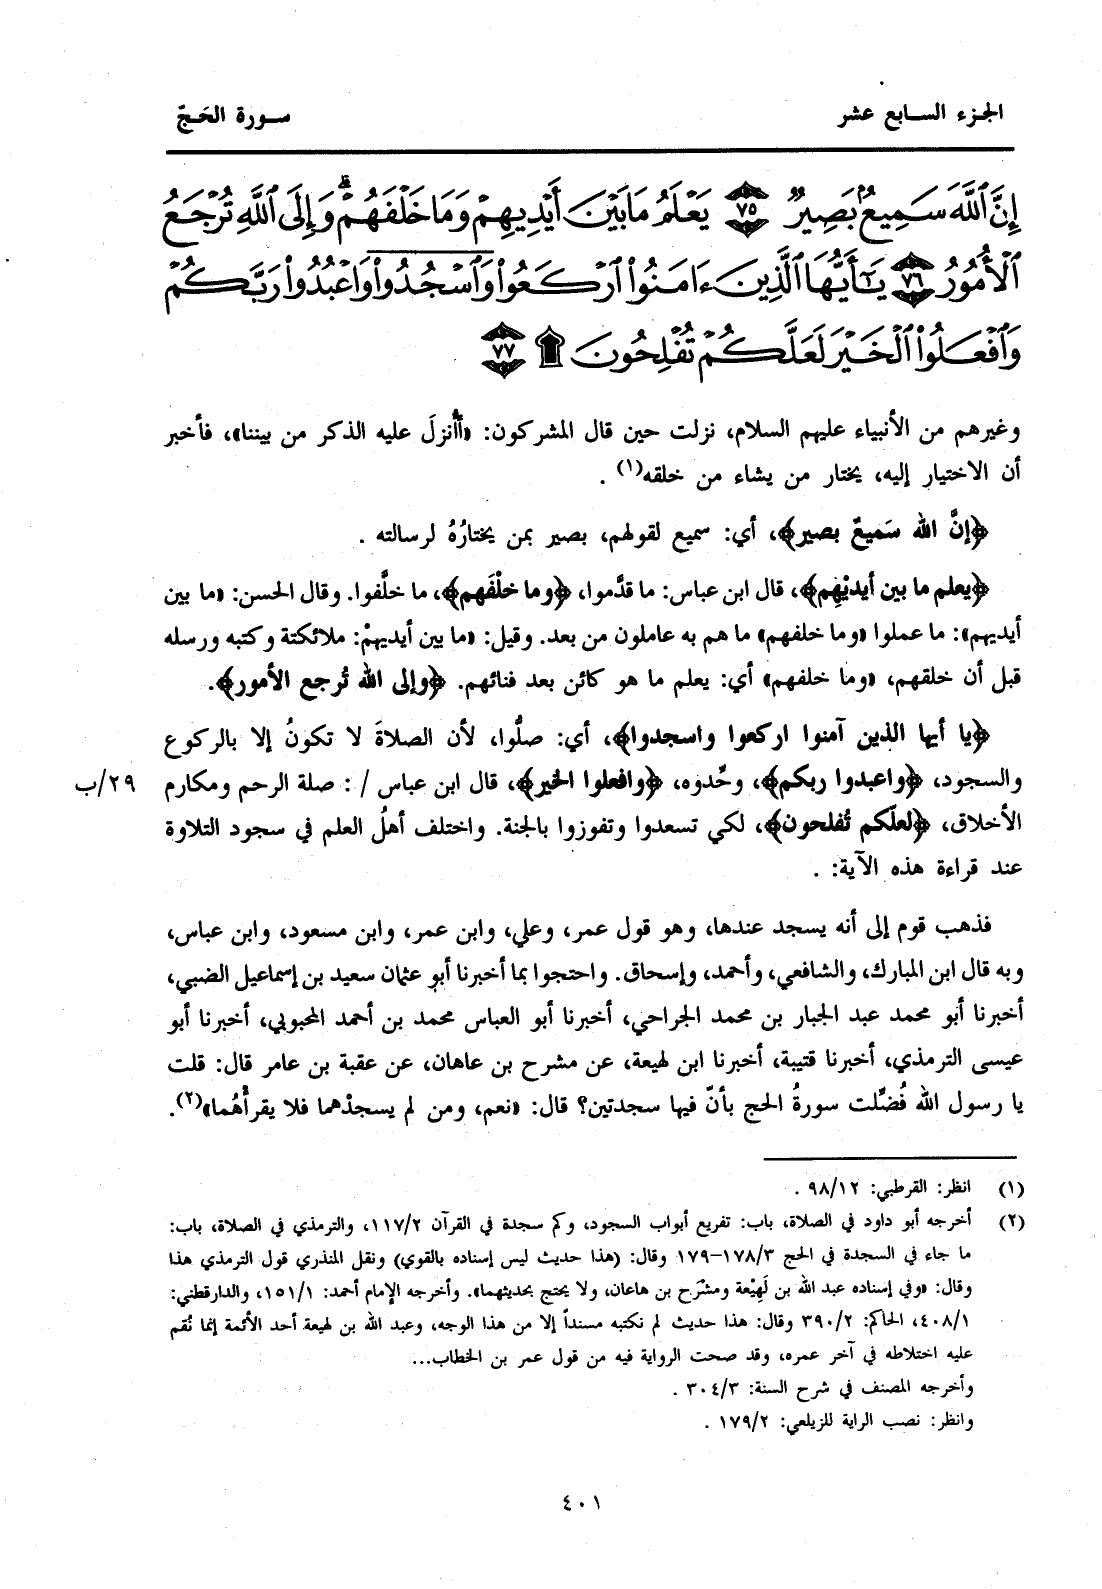 الجزء السابع عشر
سورة الحَجّ
إِنَّ ٱللَّهَ سَمِيعٌۢ بَصِيرٌ ٧٥ يَعْلَمُ مَا بَيْنَ أَيْدِيهِمْ وَمَا خَلْفَهُمْ ۗ وَإِلَى ٱللَّهِ تُرْجَعُ
ٱلْأُمُورُ ٧٦ يَٰٓأَيُّهَا ٱلَّذِينَ ءَامَنُوا۟ ٱرْكَعُوا۟ وَٱسْجُدُوا۟ وَٱعْبُدُوا۟ رَبَّكُمْ
وَٱفْعَلُوا۟ ٱلْخَيْرَ لَعَلَّكُمْ تُفْلِحُونَ ۩ ٧٧
وغيرهم من الأنبياء عليهم السلام، نزلت حين قال المشركون: «أَأُنزلَ عليه الذكر من بيننا»، فأخبر
أن الاختيار إليه، يختار من يشاء من خلقه(١) .
﴿إنَّ الله سَميعٌ بصير﴾، أي: سميع لقولهم، بصير بمن يختارُهُ لرسالته .
﴿يعلم ما بين أيديْهِم﴾، قال ابن عباس: ما قدَّموا، ﴿وما خلْفَهم﴾، ما خلَّفوا. وقال الحسن: «ما بين
أيديهم»: ما عملوا «وما خلفهم» ما هم به عاملون من بعد. وقيل: «ما بين أيديهمْ: ملائكتة وكتبه ورسله
قبل أن خلقهم، «وما خلفهم» أي: يعلم ما هو كائن بعد فنائهم. ﴿وإلى الله تُرجع الأمور﴾.
﴿يا أيها الذين آمنوا اركعوا واسجدوا﴾، أي: صلُّوا، لأن الصلاةَ لا تكونُ إلا بالركوع
والسجود، ﴿واعبدوا ربكم﴾، وحِّدوه، ﴿وافعلوا الخير﴾، قال ابن عباس / : صلة الرحم ومكارم ٢٩/ب
الأخلاق، ﴿لعلّكم تُفلحون﴾، لكي تسعدوا وتفوزوا بالجنة. واختلف أهلُ العلم في سجود التلاوة
عند قراءة هذه الآية: .
فذهب قوم إلى أنه يسجد عندها، وهو قول عمر، وعلي، وابن عمر، وابن مسعود، وابن عباس،
وبه قال ابن المبارك، والشافعي، وأحمد، وإسحاق. واحتجوا بما أخبرنا أبو عثمان سعيد بن إسماعيل الضبي،
أخبرنا أبو محمد عبد الجبار بن محمد الجراحي، أخبرنا أبو العباس محمد بن أحمد المحبوبي، أخبرنا أبو
عيسى الترمذي، أخبرنا قتيبة، أخبرنا ابن لهيعة، عن مشرح بن عاهان، عن عقبة بن عامر قال: قلت
يا رسول الله فُضِّلت سورةُ الحج بأنّ فيها سجدتين؟ قال: «نعم، ومن لم يسجدْهما فلا يقرأْهُما»(٢).
(١) انظر: القرطبي: ٩٨/١٢ .
(٢) أخرجه أبو داود في الصلاة، باب: تفريع أبواب السجود، وكم سجدة في القرآن ١١٧/٢، والترمذي في الصلاة، باب:
ما جاء في السجدة في الحج ١٧٨/٣–١٧٩ وقال: (هذا حديث ليس إسناده بالقوي) ونقل المنذري قول الترمذي هذا
وقال: «وفي إسناده عبد الله بن لَهِيْعة ومشْرَح بن هاعان، ولا يحتج بحديثهما». وأخرجه الإمام أحمد: ١٥١/١، والدارقطني:
٤٠٨/١، الحاكم: ٣٩٠/٢ وقال: هذا حديث لم نكتبه مسنداً إلا من هذا الوجه، وعبد الله بن لهيعة أحد الأئمة إنما نُقم
عليه اختلاطه في آخر عمره، وقد صحت الرواية فيه من قول عمر بن الخطاب...
وأخرجه المصنف في شرح السنة: ٣٠٤/٣ .
وانظر: نصب الراية للزيلعي: ١٧٩/٢ .
٤٠١